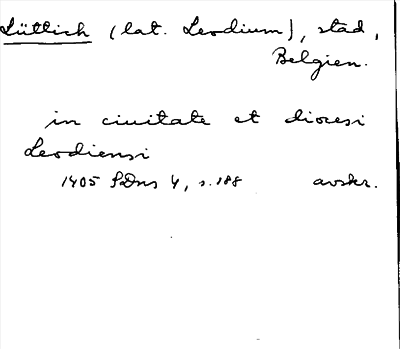 Lüttich (lat. Leodium), stad,
Belgien.
in ciuitate et diocesi
Leodiensi
1405 SDns 4, s. 188 avskr.